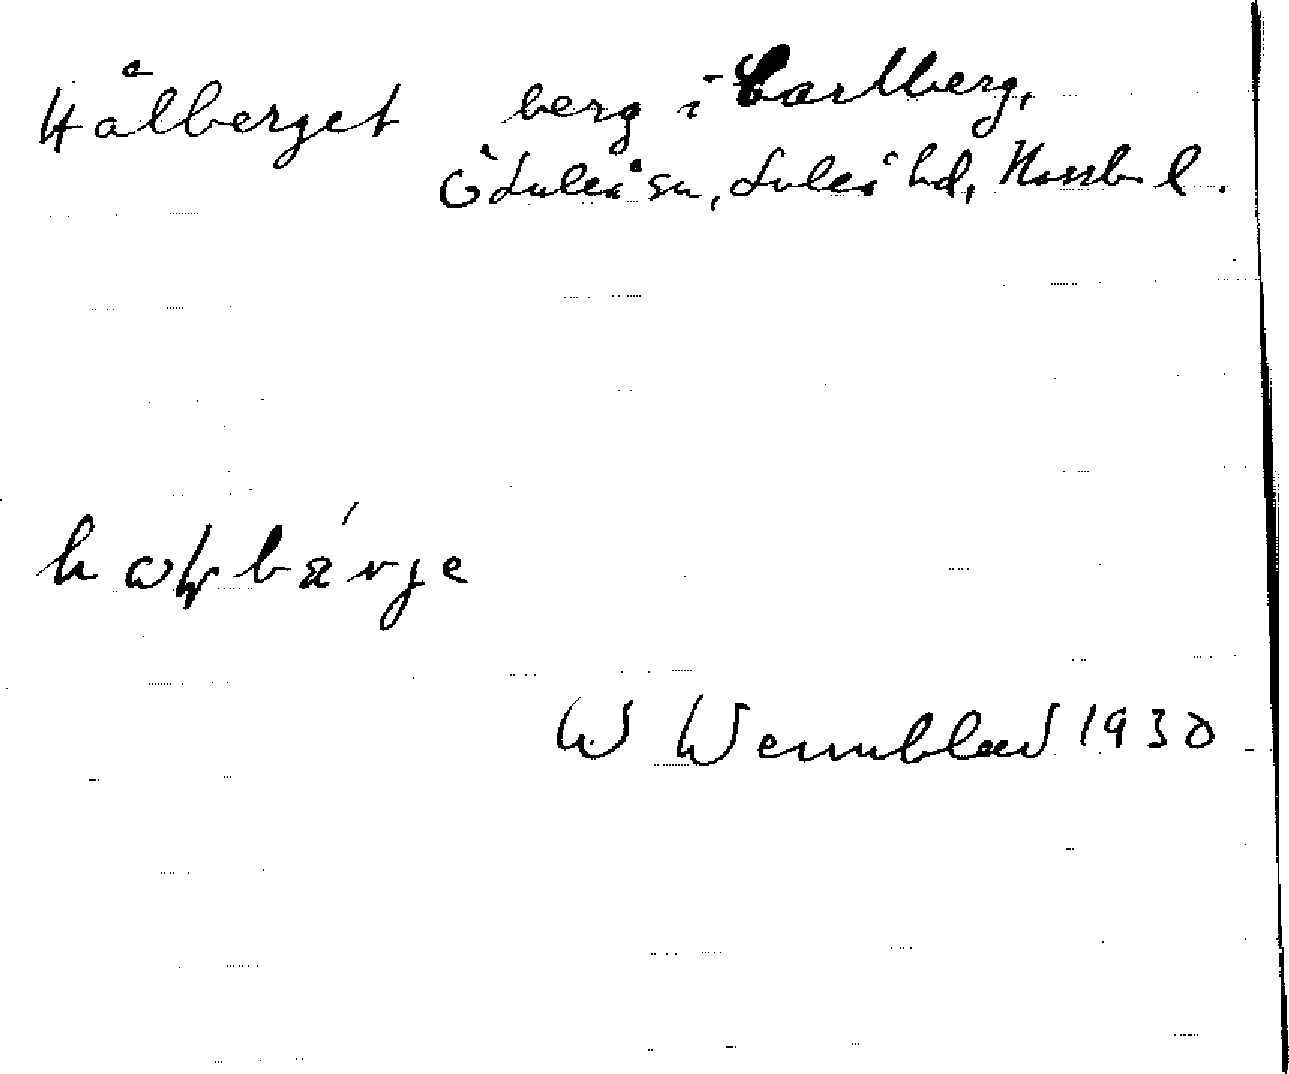 Hålberget berg i Carlberg,
ÖLuleå sn, Luleå hd, Norrb. l.
W Wennblad 1930